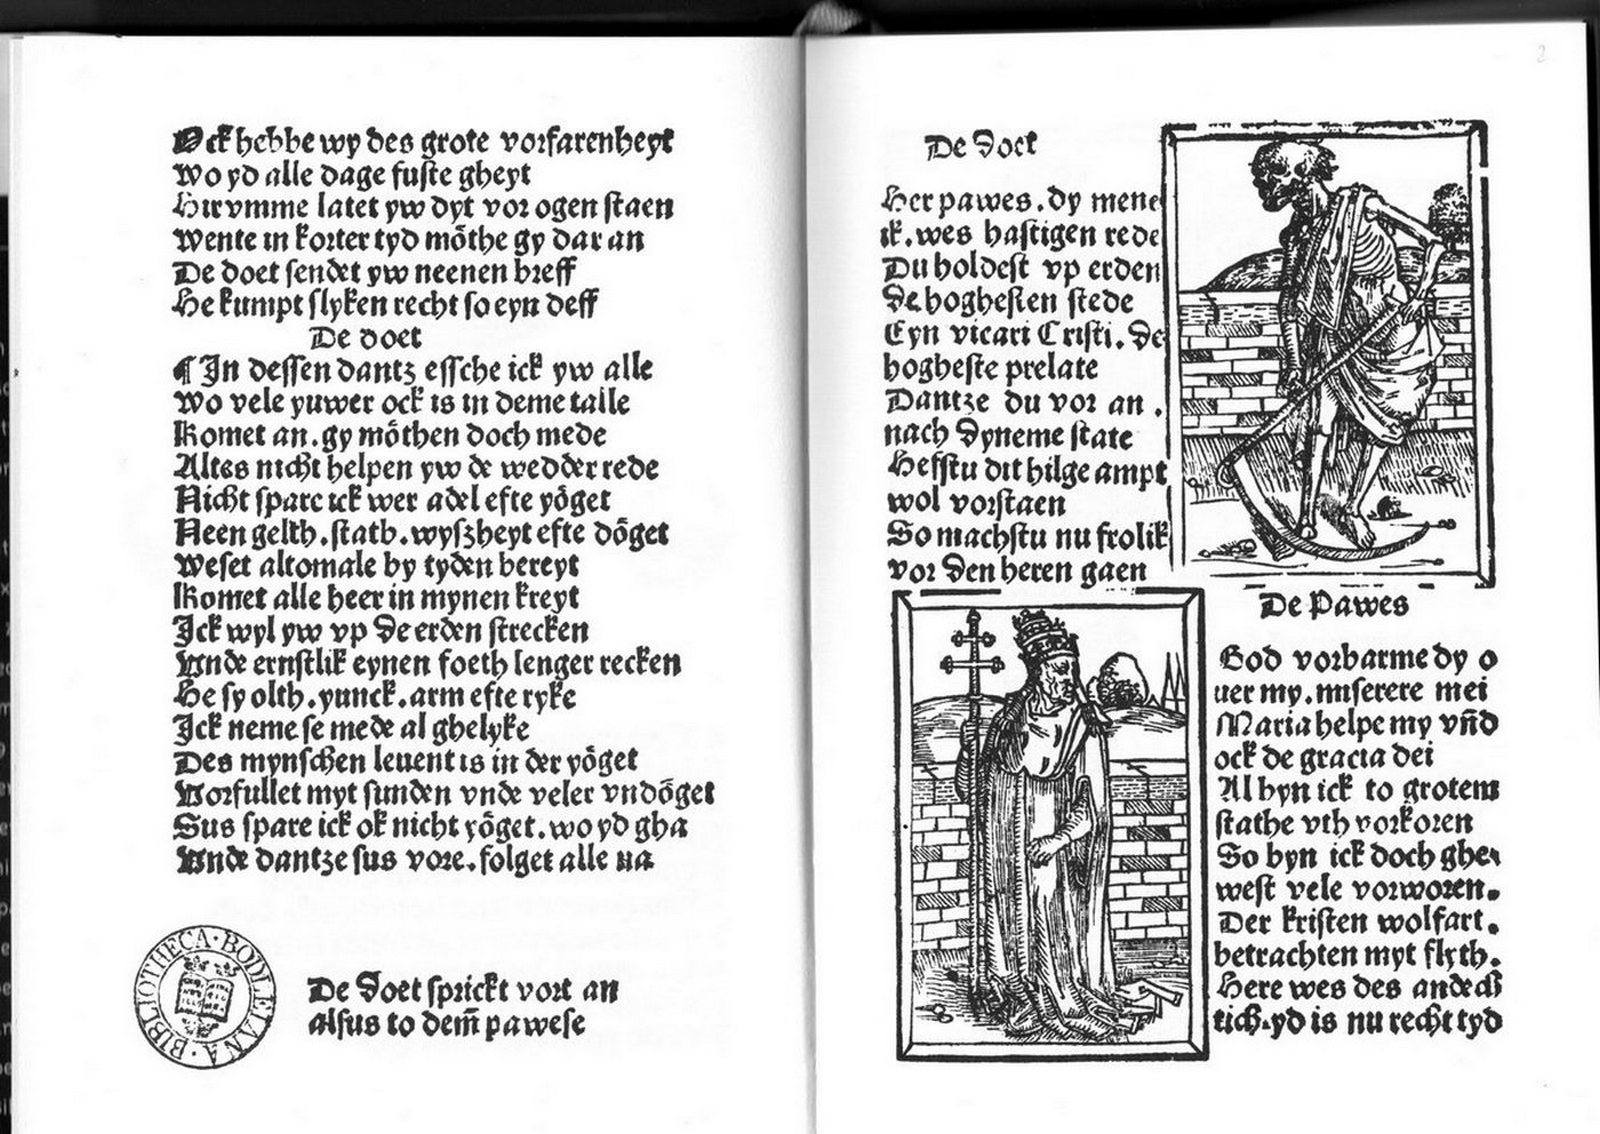 Ock hebbe wy des grote vorfarenheyt
Wo yd alle dage fuste gheyt
Hir vmme latet yw dyt vor ogen staen
Wente in korter tyd möthe gy dar an
De doet sendet yw neenen breff
He kumpt slyken recht so eyn deff
De doet
¶ In dessen dantz essche ick yw alle
Wo vele yuwer ock is in deme talle
Komet an. gy möthen doch mede
Altes nicht helpen yw de wedder rede
Nicht spare ick wer adel efte yöget
Neen gelth. stath. wyszheyt efte döget
Weset altomale by tyden bereyt
Komet alle heer in mynen kreyt
Ick wyl yw vp de erden strecken
Vnde ernstlik eynen foeth lenger recken
He sy olth. yunck. arm efte ryke
Ick neme se mede al ghelyke
Des mynschen leuent is in der yöget
Vorfullet myt sunden vnde veler vndöget
Sus spare ick ok nicht yöget. wo yd gha
Vnde dantze sus vore. folget alle na
BIBLIOTHECA · BODLEIANA ·
De Doet sprickt vort an
alsus to dem̄ pawese
2
De Doet
Her pawes. dy mene
ik. wes hastigen rede
Du holdest vp erden
de hoghesten stede
Eyn vicari Cristi. de
hogheste prelate
Dantze du vor an.
nach dyneme state
Hefstu dit hilge ampt
wol vorstaen
So machstu nu frolik
vor den heren gaen
De Pawes
God vorbarme dy o
uer my. miserere mei
Maria helpe my vn̄d
ock de gracia dei
Al byn ick to grotem
stathe vth vorkoren
So byn ick doch ghe-
west vele vorworen.
Der kristen wolfart.
betrachten myt flyth.
Here wes des andechtich. yd is nu recht tyd